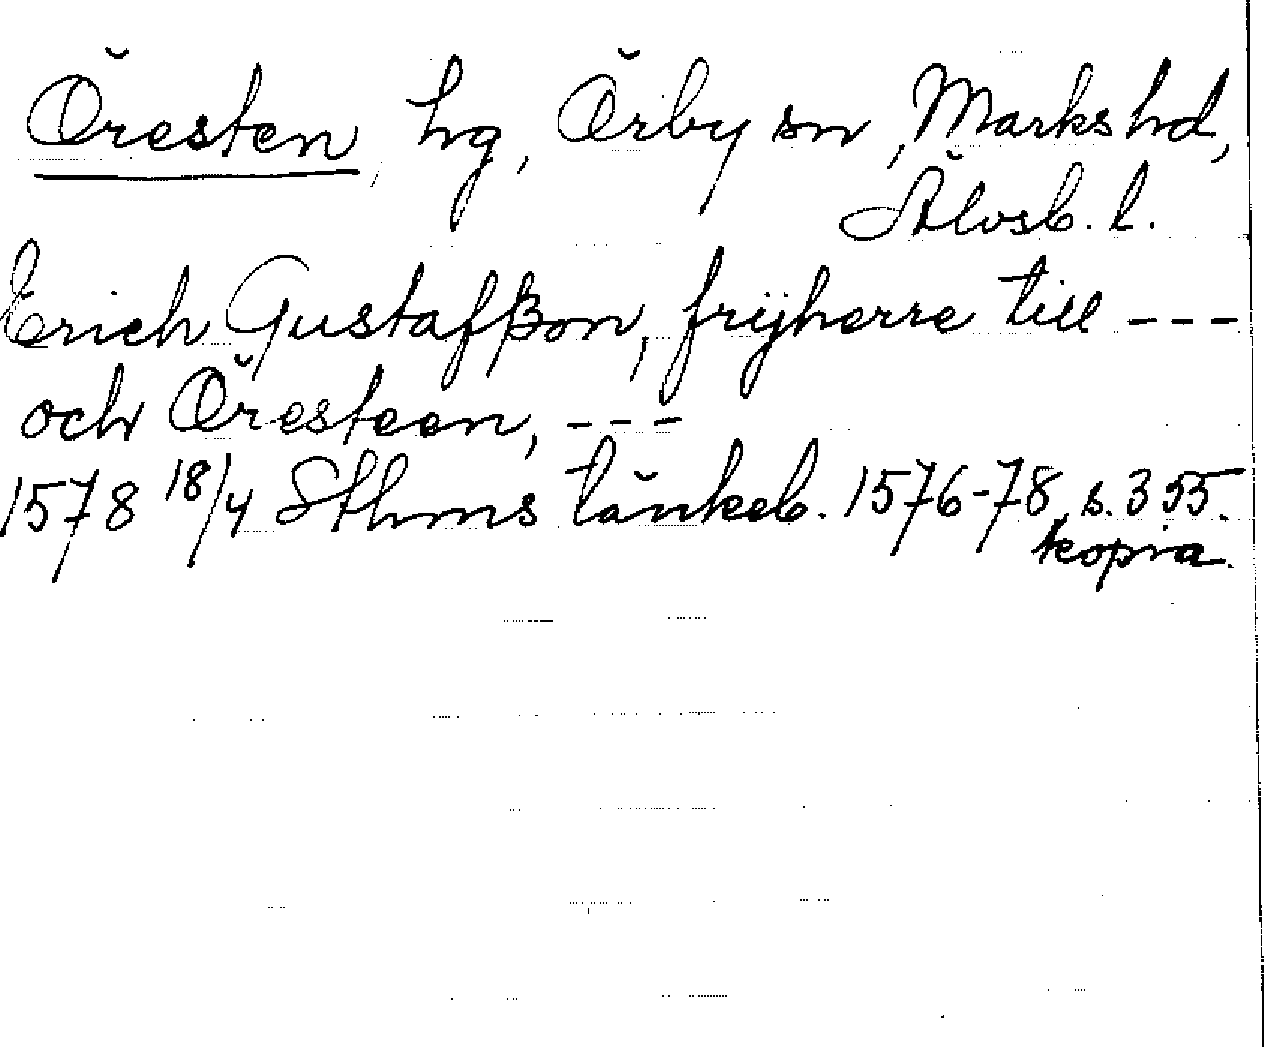 Öresten, hg, Örby sn, Marks hd,
Älvsb. l.
Erich Gustafßon, frijherre till ---
och Öresteen, ---
1578 18/4 Sthms tänkeb. 1576-78, s. 355.
kopia.